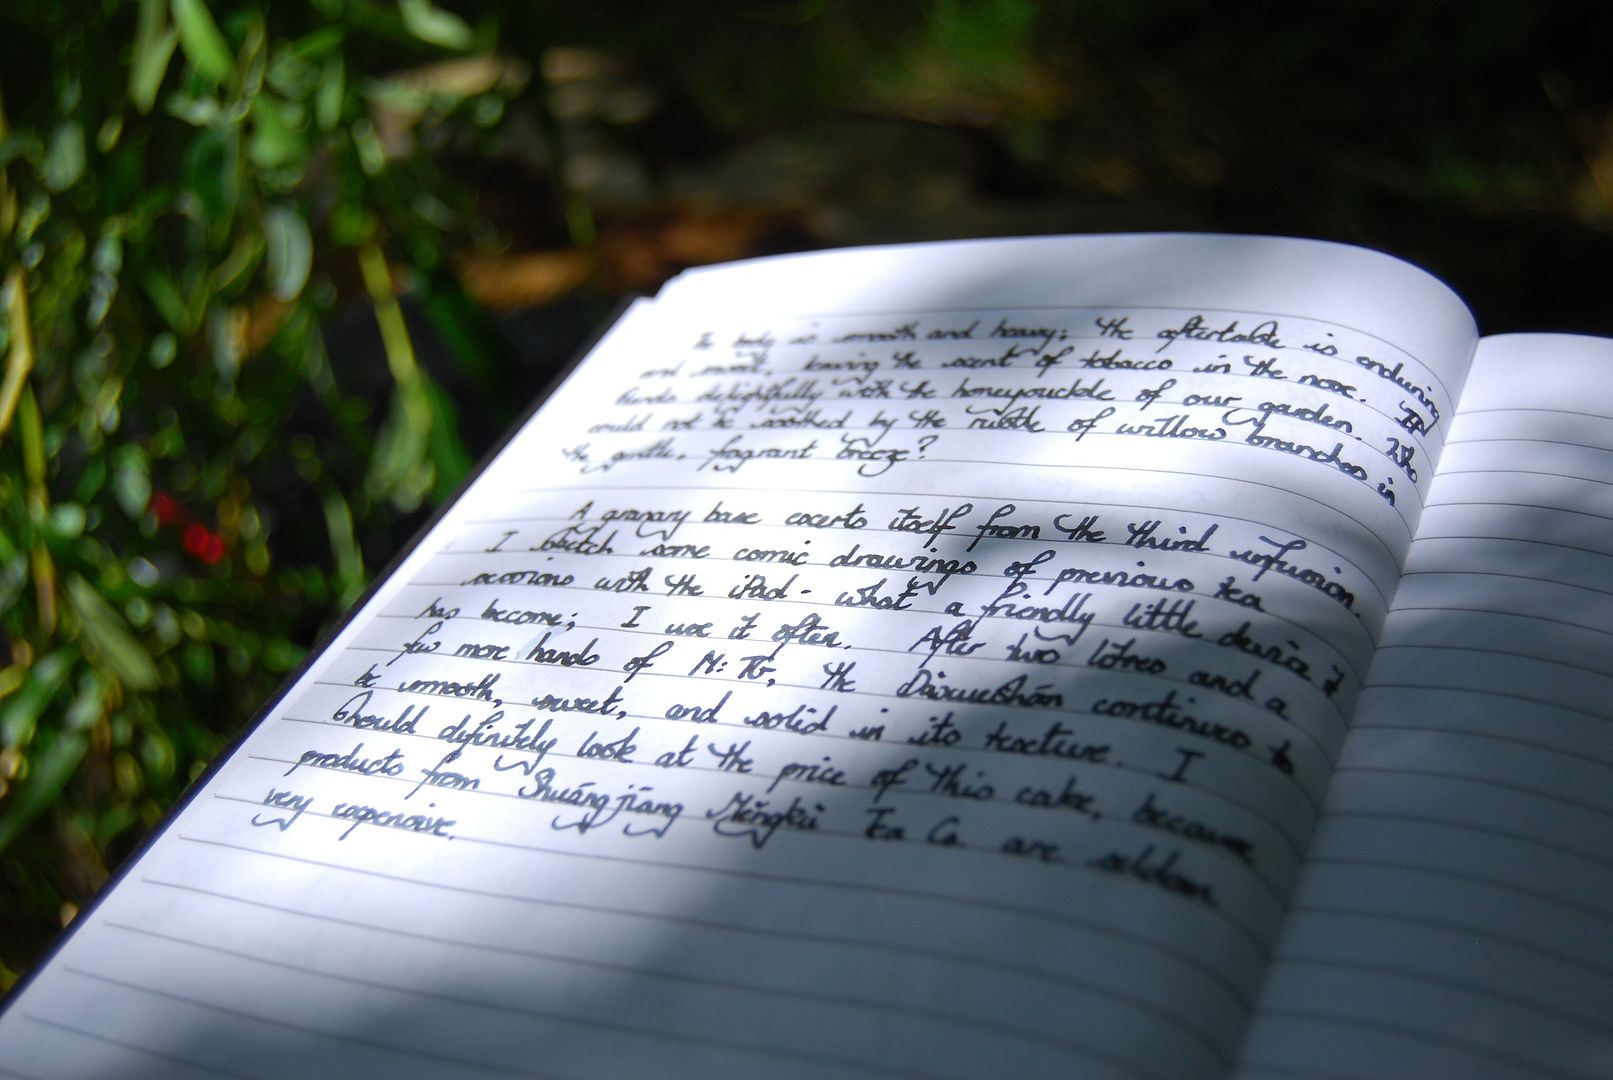 The body is smooth and heavy; the aftertaste is enduring
and sweet, leaving the scent of tobacco in the nose. It
blends delightfully with the honeysuckle of our garden. Who
could not be soothed by the rustle of willow branches in
the gentle, fragrant breeze?
A granary base exerts itself from the third infusion.
I sketch some comic drawings of previous tea
sessions with the iPad - what a friendly little device it
has become; I use it often. After two litres and a
few more hands of M:TG, the Dàxuěshān continues to
be smooth, sweet, and solid in its texture. I
should definitely look at the price of this cake, because
products from Shuāngjiāng Měngkù Tea Co. are seldom
very expensive.